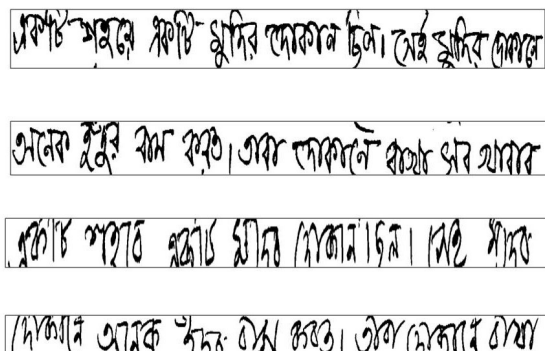 একটি শহরে একটি মুদির দোকান ছিল। সেই মুদির দোকানে
অনেক ইঁদুর বাস করত। তারা দোকানে রাখা সব খাবার
একটি শহরে একটি মুদির দোকান ছিল। সেই মুদির
দোকানে অনেক ইঁদুর বাস করত। তারা দোকানে রাখা